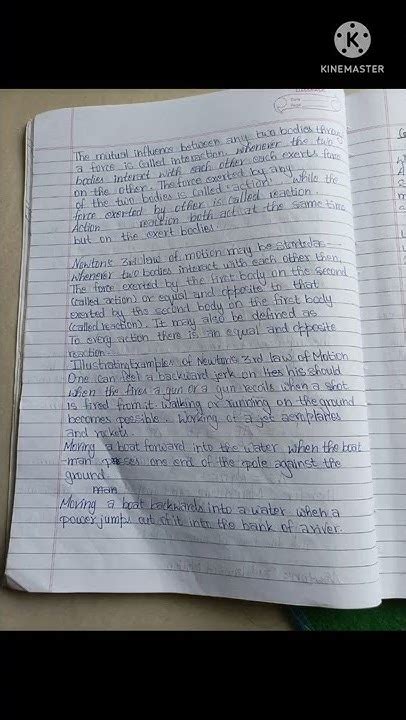 KINEMASTER
The mutual influence between any two bodies through
a force is called interaction. Whenever the two
bodies interact with each other each exerts force
on the other. The force exerted by any
of the two bodies is called action. While the
force exerted by other is called reaction.
Action reaction both act at the same time
but on the exert bodies.
Newton's 3rd law of motion may be stated as
Whenever two bodies interact with each other then,
The force exerted by the first body on the second
(called action) or equal and opposite to that
exerted by the second body on the first body
(called reaction). It may also be defined as
To every action there is an equal and opposite
reaction.
Illustrating Examples of Newton's 3rd law of Motion
One can feel a backward jerk on his should
when the fires a gun or a gun recoils when a shot
is fired from it. Walking or running on the ground
becomes possible. Working of a jet aeroplanes
and rockets.
Moving a boat forward into the water when the boat
-man one end of the pole against the
ground.
Moving a boat backwards into a water when a
power jumps out of it into the bank of a river.